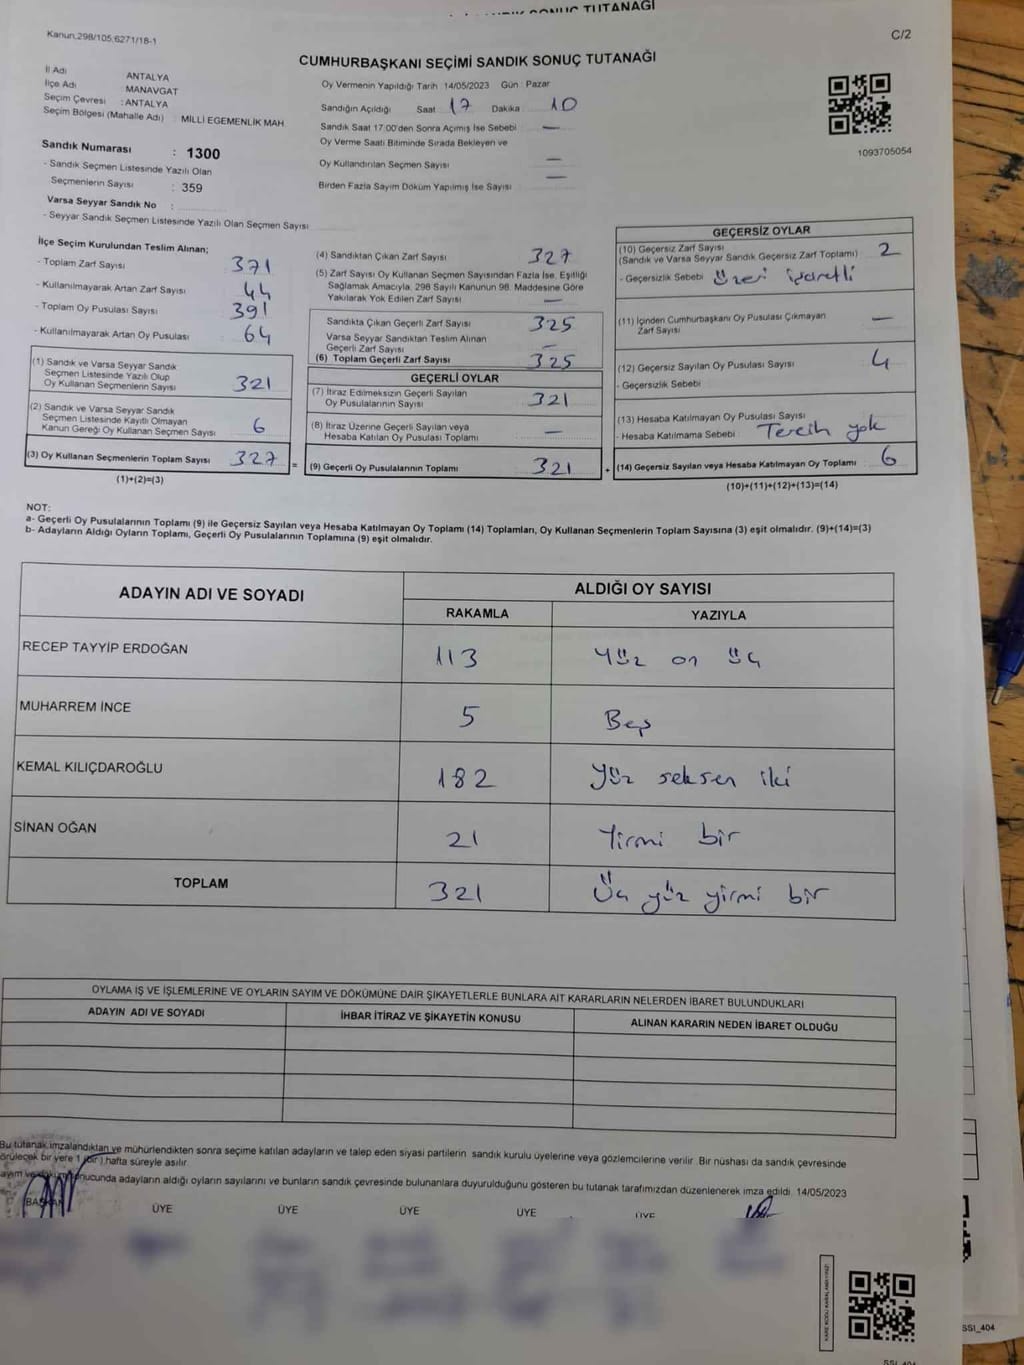 SONUÇ TUTANAĞI
Kanun,298/105,6271/18-1
C/2
CUMHURBAŞKANI SEÇİMİ SANDIK SONUÇ TUTANAĞI
İl Adı ANTALYA
İlçe Adı MANAVGAT
Seçim Çevresi : ANTALYA
Seçim Bölgesi (Mahalle Adı) : MİLLİ EGEMENLİK MAH.
Sandık Numarası : 1300
- Sandık Seçmen Listesinde Yazılı Olan
Seçmenlerin Sayısı : 359
Varsa Seyyar Sandık No :
- Seyyar Sandık Seçmen Listesinde Yazılı Olan Seçmen Sayısı
Oy Vermenin Yapıldığı Tarih 14/05/2023 Gün Pazar
Sandığın Açıldığı Saat 17 Dakika 10
Sandık Saat 17:00'den Sonra Açımış İse Sebebi —
Oy Verme Saati Bitiminde Sırada Bekleyen ve
Oy Kullandırılan Seçmen Sayısı —
Birden Fazla Sayım Döküm Yapılmış İse Sayısı —
1093705054
İlçe Seçim Kurulundan Teslim Alınan;
- Toplam Zarf Sayısı 371
- Kullanılmayarak Artan Zarf Sayısı 44
- Toplam Oy Pusulası Sayısı 391
- Kullanılmayarak Artan Oy Pusulası 64
(1) Sandık ve Varsa Seyyar Sandık
Seçmen Listesinde Yazılı Olup
Oy Kullanan Seçmenlerin Sayısı 321
(2) Sandık ve Varsa Seyyar Sandık
Seçmen Listesinde Kayıtlı Olmayan
Kanun Gereği Oy Kullanan Seçmen Sayısı 6
(3) Oy Kullanan Seçmenlerin Toplam Sayısı 327 =
(1)+(2)=(3)
(4) Sandıktan Çıkan Zarf Sayısı 327
(5) Zarf Sayısı Oy Kullanan Seçmen Sayısından Fazla İse, Eşitliği
Sağlamak Amacıyla, 298 Sayılı Kanunun 98. Maddesine Göre
Yakılarak Yok Edilen Zarf Sayısı —
Sandıkta Çıkan Geçerli Zarf Sayısı 325
Varsa Seyyar Sandıktan Teslim Alınan
Geçerli Zarf Sayısı —
(6) Toplam Geçerli Zarf Sayısı 325
GEÇERLİ OYLAR
(7) İtiraz Edilmeksizin Geçerli Sayılan
Oy Pusulalarının Sayısı 321
(8) İtiraz Üzerine Geçerli Sayılan veya
Hesaba Katılan Oy Pusulası Toplamı —
(9) Geçerli Oy Pusulalarının Toplamı 321 +
GEÇERSİZ OYLAR
(10) Geçersiz Zarf Sayısı
(Sandık ve Varsa Seyyar Sandık Geçersiz Zarf Toplamı) 2
- Geçersizlik Sebebi üzeri işaretli
(11) İçinden Cumhurbaşkanı Oy Pusulası Çıkmayan
Zarf Sayısı —
(12) Geçersiz Sayılan Oy Pusulası Sayısı 4
- Geçersizlik Sebebi
(13) Hesaba Katılmayan Oy Pusulası Sayısı
- Hesaba Katılmama Sebebi Tercih yok
(14) Geçersiz Sayılan veya Hesaba Katılmayan Oy Toplamı 6
(10)+(11)+(12)+(13)=(14)
NOT:
a- Geçerli Oy Pusulalarının Toplamı (9) ile Geçersiz Sayılan veya Hesaba Katılmayan Oy Toplamı (14) Toplamları, Oy Kullanan Seçmenlerin Toplam Sayısına (3) eşit olmalıdır. (9)+(14)=(3)
b- Adayların Aldığı Oyların Toplamı, Geçerli Oy Pusulalarının Toplamına (9) eşit olmalıdır.
ADAYIN ADI VE SOYADI ALDIĞI OY SAYISI
RAKAMLA YAZIYLA
RECEP TAYYİP ERDOĞAN 113 Yüz on üç
MUHARREM İNCE 5 Beş
KEMAL KILIÇDAROĞLU 182 Yüz seksen iki
SİNAN OĞAN 21 Yirmi bir
TOPLAM 321 Üç yüz yirmi bir
OYLAMA İŞ VE İŞLEMLERİNE VE OYLARIN SAYIM VE DÖKÜMÜNE DAİR ŞİKAYETLERLE BUNLARA AİT KARARLARIN NELERDEN İBARET BULUNDUKLARI
ADAYIN ADI VE SOYADI İHBAR İTİRAZ VE ŞİKAYETİN KONUSU ALINAN KARARIN NEDEN İBARET OLDUĞU
Bu tutanak imzalandıktan ve mühürlendikten sonra seçime katılan adayların ve talep eden siyasi partilerin sandık kurulu üyelerine veya gözlemcilerine verilir. Bir nüshası da sandık çevresinde
görülecek bir yere 1 (bir) hafta süreyle asılır.
sonucunda adayların aldığı oyların sayılarını ve bunların sandık çevresinde bulunanlara duyurulduğunu gösteren bu tutanak tarafımızdan düzenlenerek imza edildi. 14/05/2023
BAŞKAN ÜYE ÜYE ÜYE ÜYE ÜYE
SSI_404
SSI_404